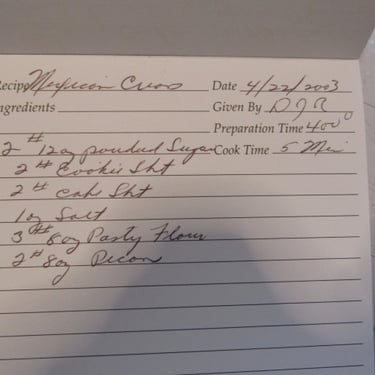 Recipe Mexican Date 4/22/2003
Ingredients Given By DJR
Preparation Time 400°
2# 12oz powded Sugar Cook Time 5 Min
2# Cookie Sht
2# cake Sht
1oz Salt
3# 8oz Pasty Flour
2# 8oz Pecan